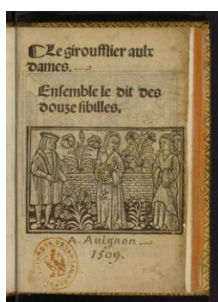 Le giroufflier aulx
dames.
Ensemble le dit des
douze sibilles.
A. Auignon.
1509.